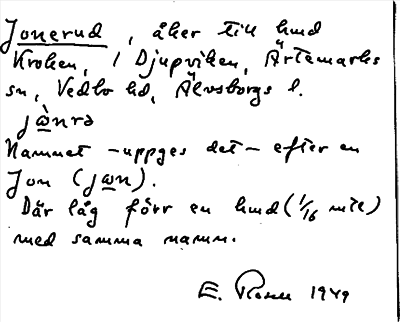 Jonerud, åker till hmd
Kroken, i Djupviken, Ärtemarks
sn, Vedbo hd, Älvsborgs l.
jònrə
Namnet – uppges det – efter en
Jon (jon).
Där låg förr en hmd (1/16 mtl)
med samma namn.
E. Rosell 1949